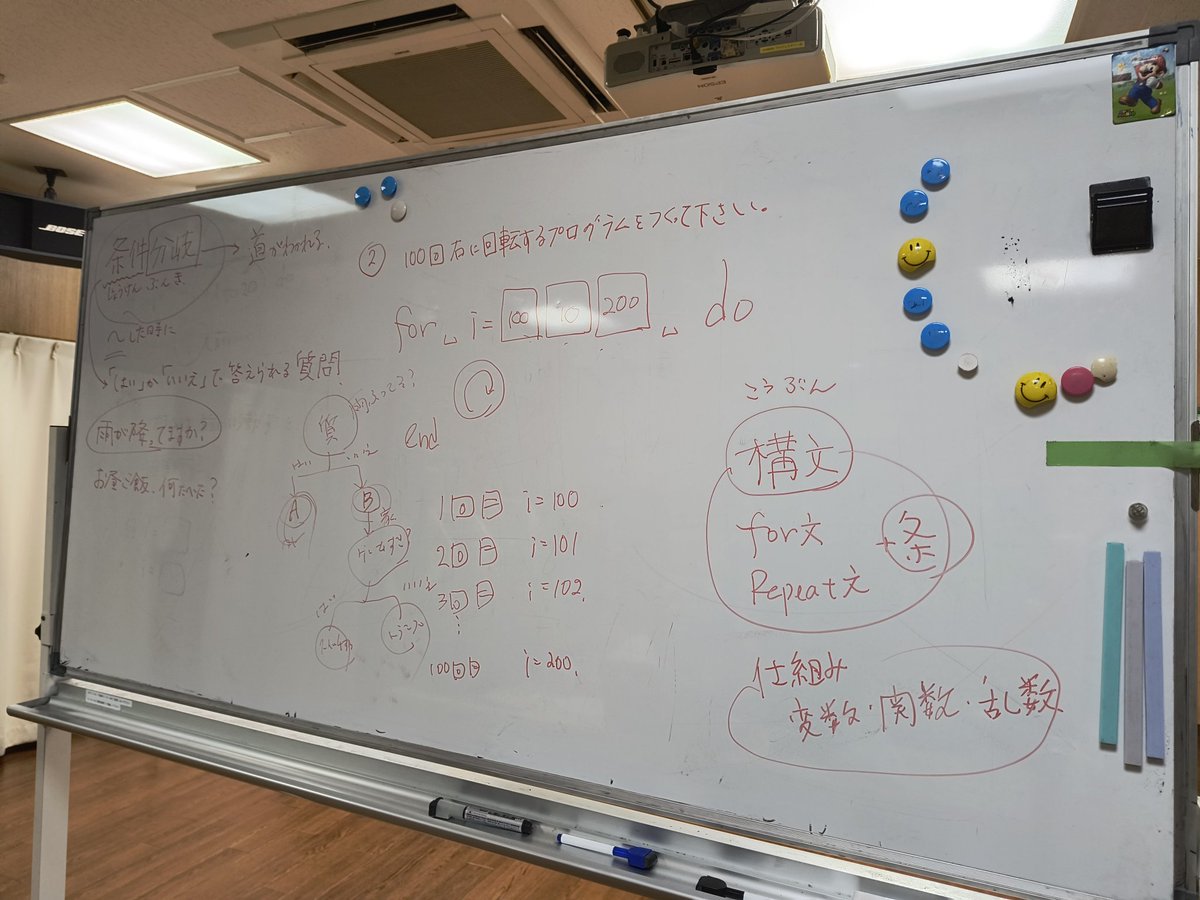 条件分岐 → 道がわかれる
じょうけん ぶんき
〜した時に
「はい」か「いいえ」で答えられる質問
雨が降ってますか?
お昼ご飯、何たべた?
質
はい いいえ
A
B
はい いいえ
② 100回右に回転するプログラムをつくって下さい。
for␣i= 100 200 ␣do
end
1回目 i=100
2回目 i=101
3回目 i=102
⋮
100回目 i=200
こうぶん
構文
for文
Repeat文
条
仕組み
変数・関数・乱数
EPSON
BOSE